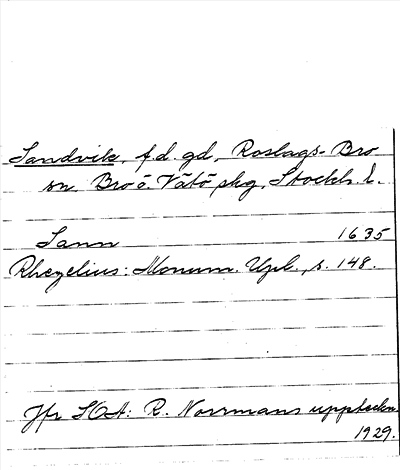 Sandvik, f.d. gd, Roslags-Bro
sn. Bro o. Vätö skg, Stockh. l.
Sann 1635
Rhezelius: Monum. Upl., s. 148.
Jfr SOA: R. Norrmans uppteckn.
1929.